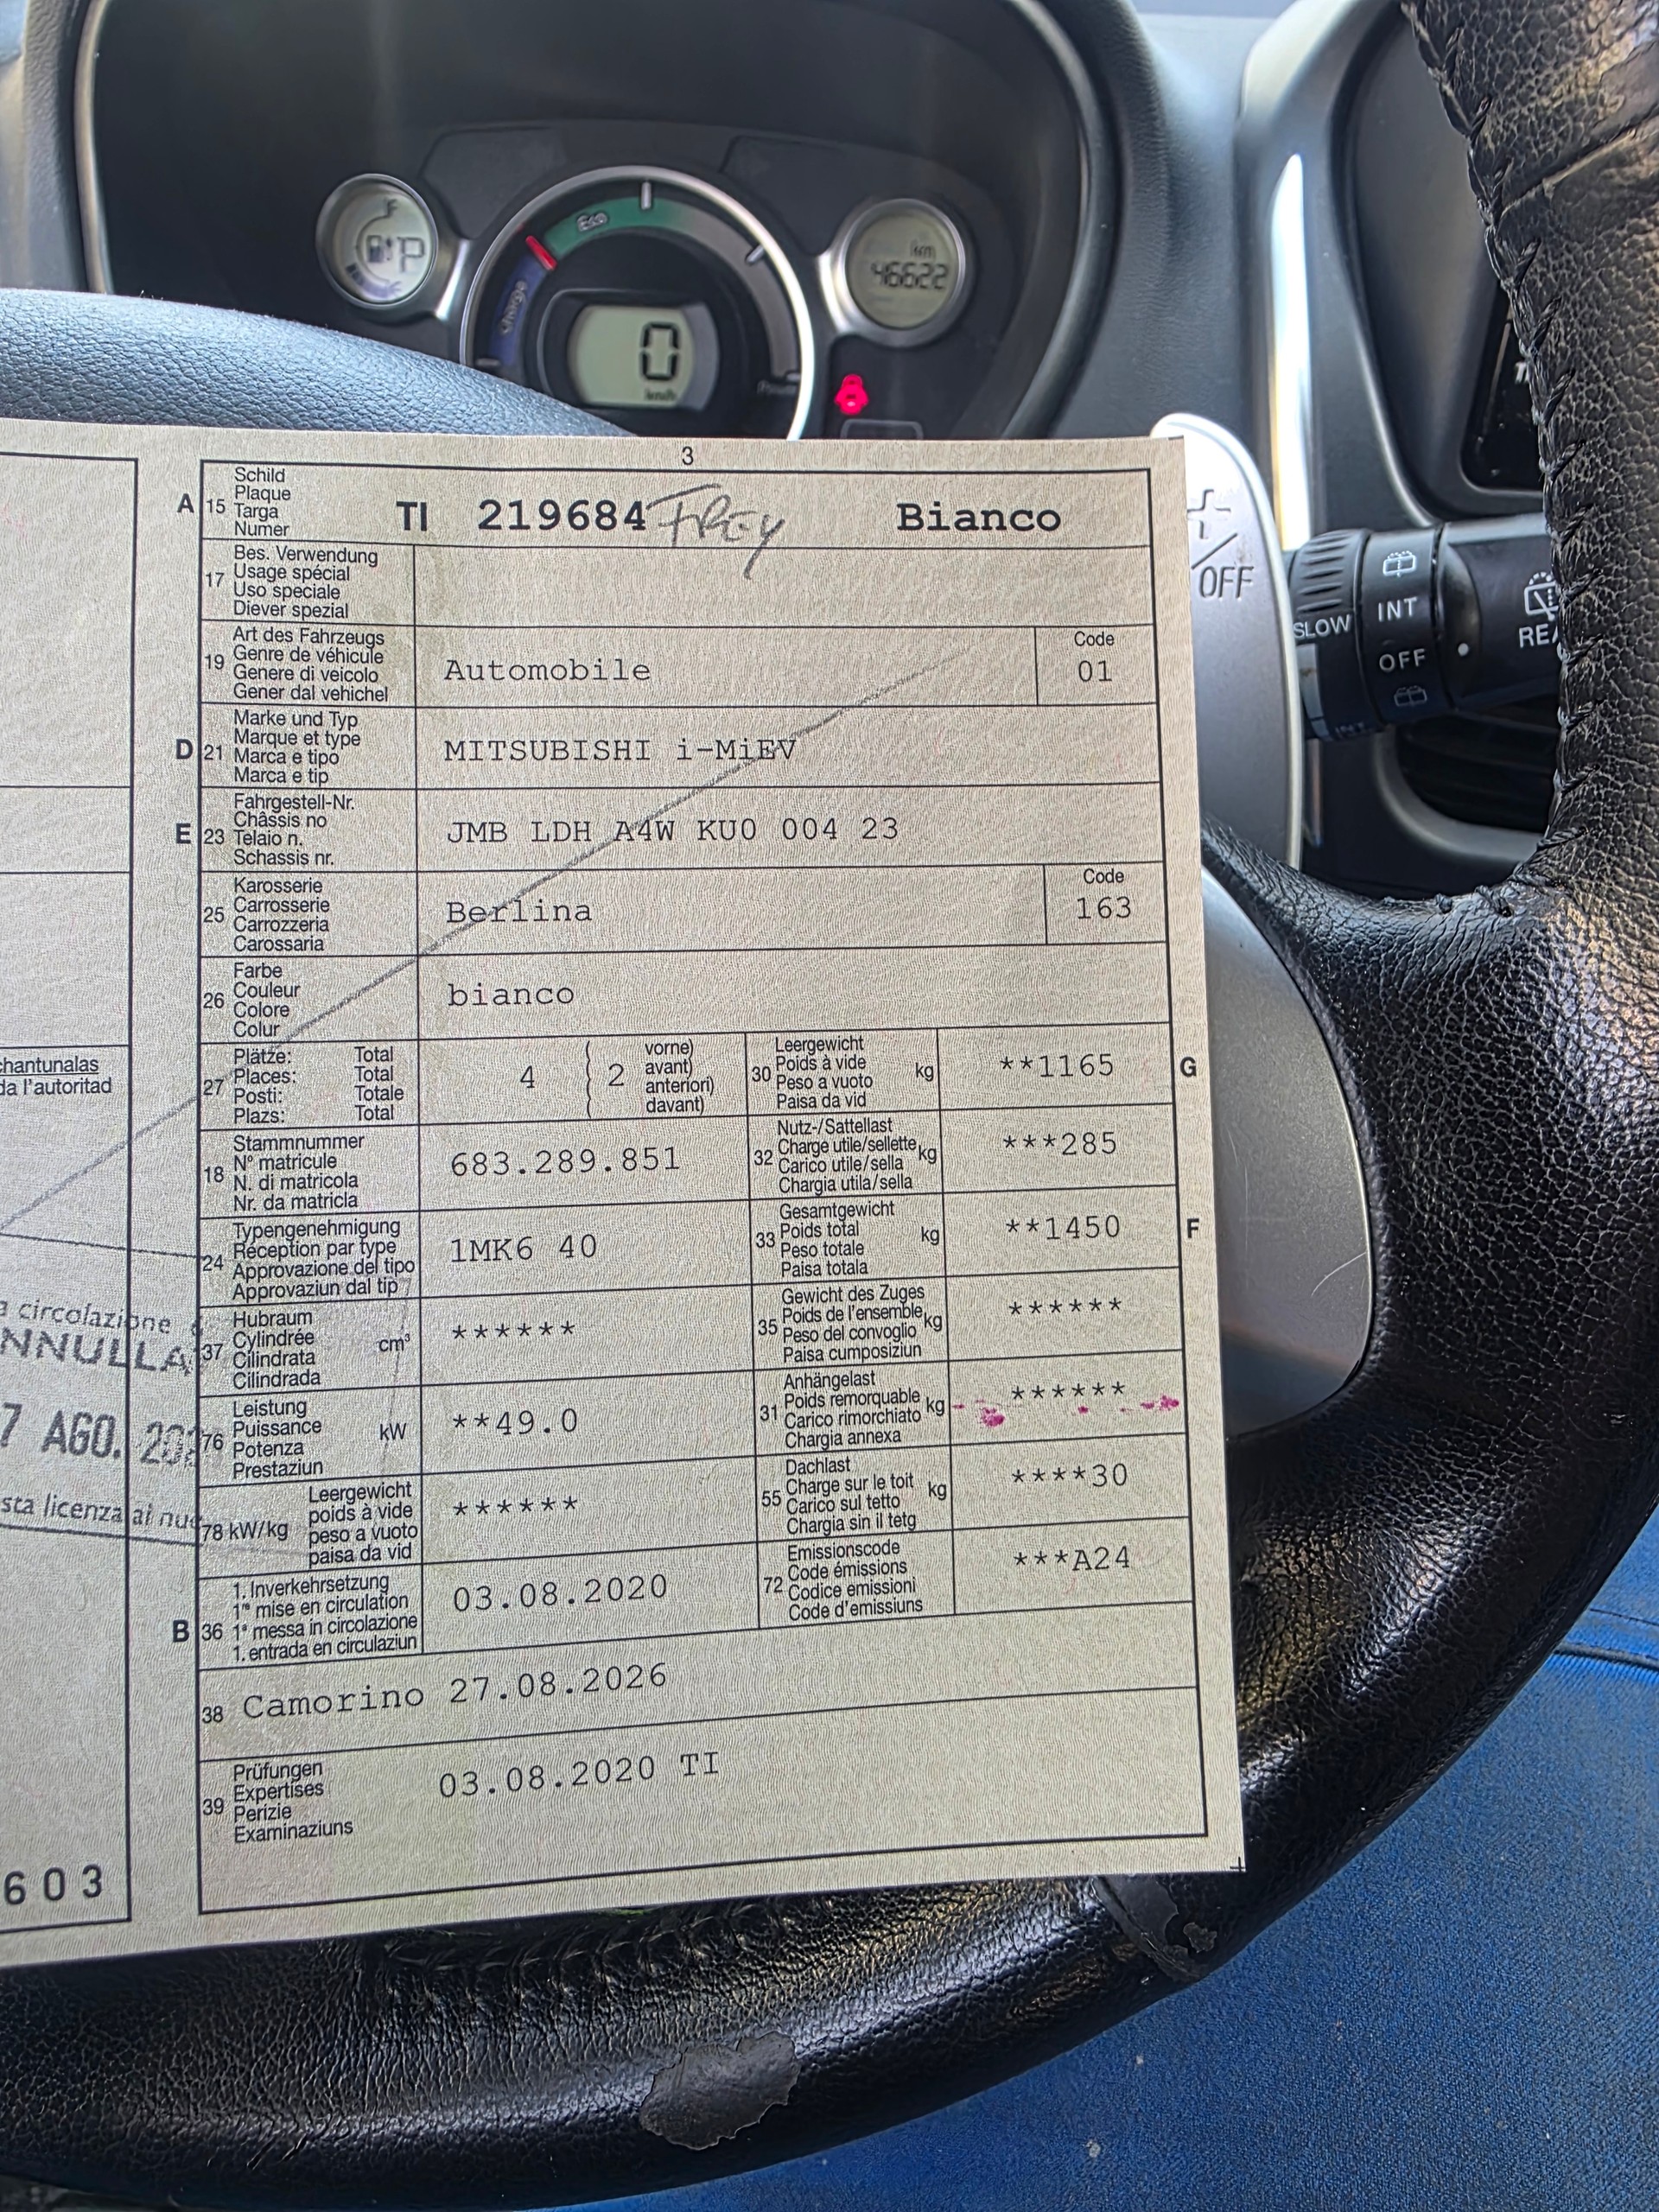 F
P
E
Eco
Charge
Power
0
km/h
km
46622
+
/OFF
SLOW
INT
OFF
3
A 15 Schild
Plaque
Targa
Numer
TI 219684 FREY Bianco
17 Bes. Verwendung
Usage spécial
Uso speciale
Diever spezial
19 Art des Fahrzeugs
Genre de véhicule
Genere di veicolo
Gener dal vehichel
Automobile
Code
01
D 21 Marke und Typ
Marque et type
Marca e tipo
Marca e tip
MITSUBISHI i-MiEV
E 23 Fahrgestell-Nr.
Châssis no
Telaio n.
Schassis nr.
JMB LDH A4W KU0 004 23
25 Karosserie
Carrosserie
Carrozzeria
Carossaria
Berlina
Code
163
26 Farbe
Couleur
Colore
Colur
bianco
27 Plätze: Total
Places: Total
Posti: Totale
Plazs: Total
4 ( 2 vorne)
avant)
anteriori)
davant)
30 Leergewicht
Poids à vide
Peso a vuoto
Paisa da vid
kg
**1165
G
18 Stammnummer
N° matricule
N. di matricola
Nr. da matricla
683.289.851
32 Nutz-/Sattellast
Charge utile/sellette
Carico utile/sella
Chargia utila/sella
kg
***285
24 Typengenehmigung
Réception par type
Approvazione del tipo
Approvaziun dal tip
1MK6 40
33 Gesamtgewicht
Poids total
Peso totale
Paisa totala
kg
**1450
F
37 Hubraum
Cylindrée
Cilindrata
Cilindrada
cm³
******
35 Gewicht des Zuges
Poids de l'ensemble
Peso del convoglio
Paisa cumposiziun
kg
******
76 Leistung
Puissance
Potenza
Prestaziun
kW
**49.0
31 Anhängelast
Poids remorquable
Carico rimorchiato
Chargia annexa
kg
******
78 kW/kg Leergewicht
poids à vide
peso a vuoto
paisa da vid
******
55 Dachlast
Charge sur le toit
Carico sul tetto
Chargia sin il tetg
kg
****30
B 36 1. Inverkehrsetzung
1re mise en circulation
1a messa in circolazione
1. entrada en circulaziun
03.08.2020
72 Emissionscode
Code émissions
Codice emissioni
Code d'emissiuns
***A24
38 Camorino 27.08.2026
39 Prüfungen
Expertises
Perizie
Examinaziuns
03.08.2020 TI
chantunalas
da l'autoritad
circolazione
NNULLA
7 AGO.
sta licenza ai
603